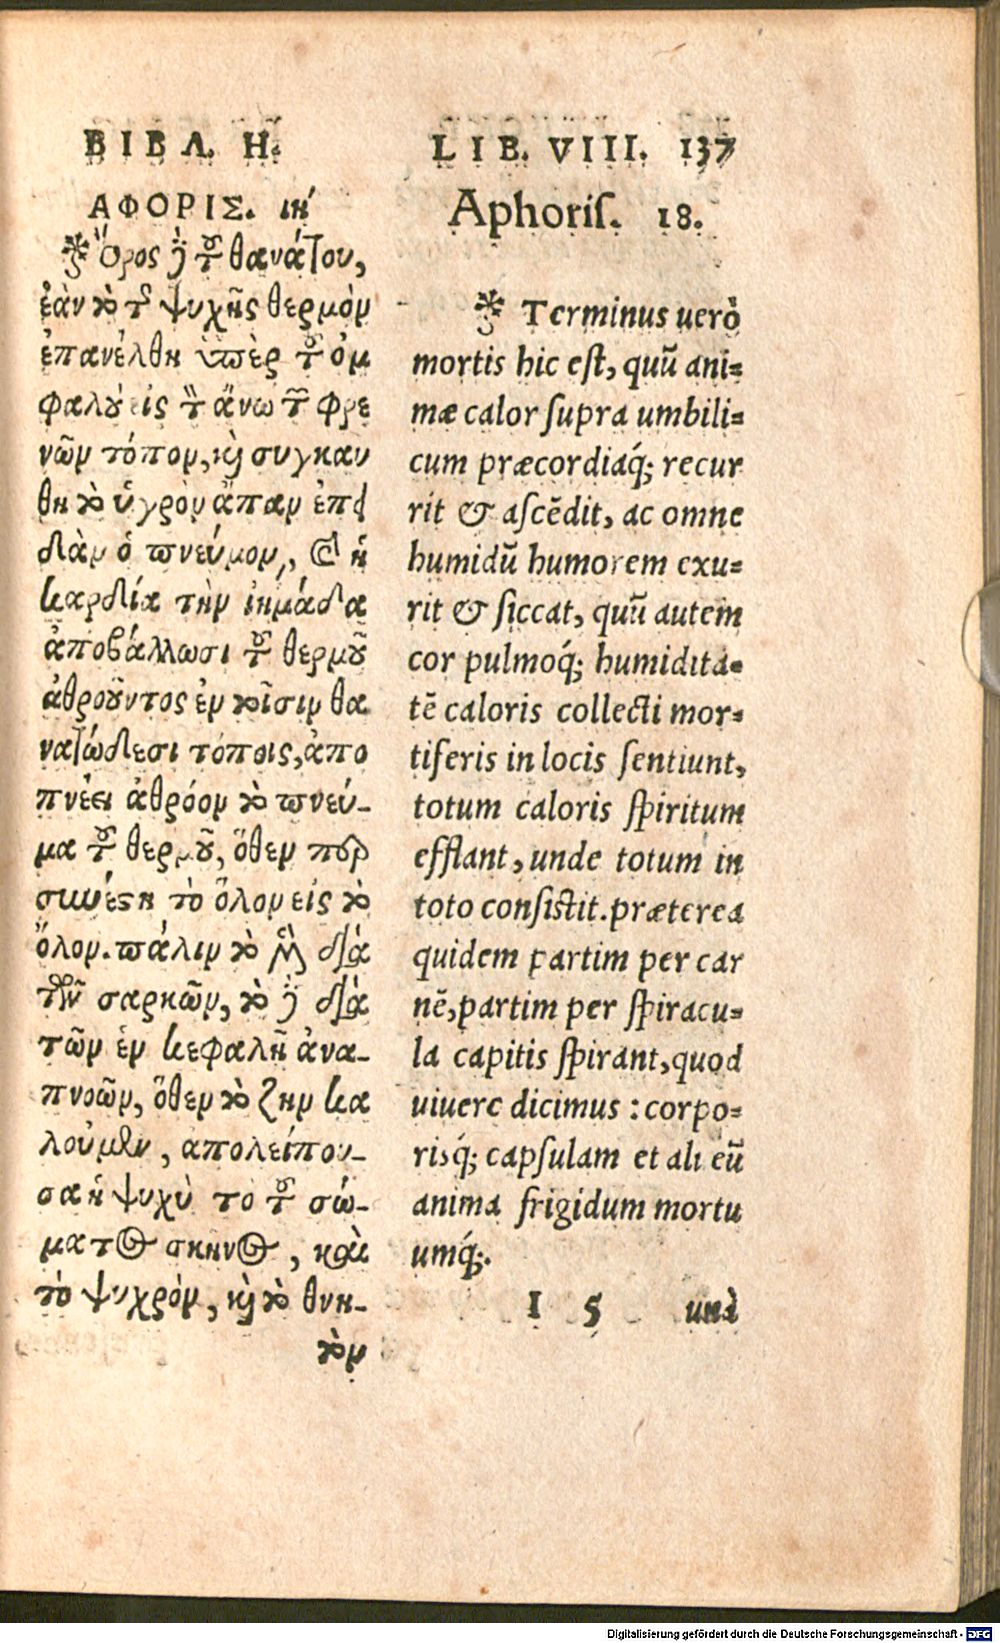 ΒΙΒΛ. Η.
ΑΦΟΡΙΣ. ιή
Ὅρος δὲ τοῦ θανάτου,
ἐὰν τὸ τῆς ψυχῆς θερμὸν
ἐπανέλθη ὑπὲρ τοῦ ὀμ
φαλοῦ εἰς τὸ ἄνω τῶν φρε
νῶν τόπον, καὶ συγκαυ
θη τὸ ὑγρὸν ἅπαν ἐπει
δὰν ὁ πνεύμον, καὶ ἡ
καρδία τὴν ἰκμάδα
ἀποβάλλωσι τοῦ θερμοῦ
ἀθροῦντος ἐν τοῖσιν θα
νατώδεσι τόποις, ἀπο
πνέει ἀθρόον τὸ πνεύ-
μα τοῦ θερμοῦ, ὅθεν περ
συνέστη τὸ ὅλον εἰς τὸ
ὅλον. πάλιν τὸ μὲν διὰ
τῶν σαρκῶν, τὸ δὲ διὰ
τῶν ἐν κεφαλῆ ἀνα-
πνοῶν, ὅθεν τὸ ζῆν κα
λοῦμεν, ἀπολείπου-
σα ἡ ψυχὺ τὸ τοῦ σώ-
ματος σκηνος, καὶ
τὸ ψυχρὸν, καὶ τὸ θνη-
τὸν
LIB. VIII. 137
Aphoriſ. 18.
Terminus uerò
mortis hic eſt, quũ ani=
mæ calor ſupra umbili=
cum præcordiaq́; recur
rit & aſcẽdit, ac omne
humidũ humorem exu=
rit & ſiccat, quũ autem
cor pulmoq́; humidita=
tẽ caloris collecti mor=
tiferis in locis ſentiunt,
totum caloris ſpiritum
efflant, unde totum in
toto conſiſtit. præterea
quidem partim per car
nẽ, partim per ſpiracu=
la capitis ſpirant, quod
uiuere dicimus : corpo=
risq́; capſulam et ali eũ
anima frigidum mortu
umq́;.
I 5 unà
Digitalisierung gefördert durch die Deutsche Forschungsgemeinschaft - DFG